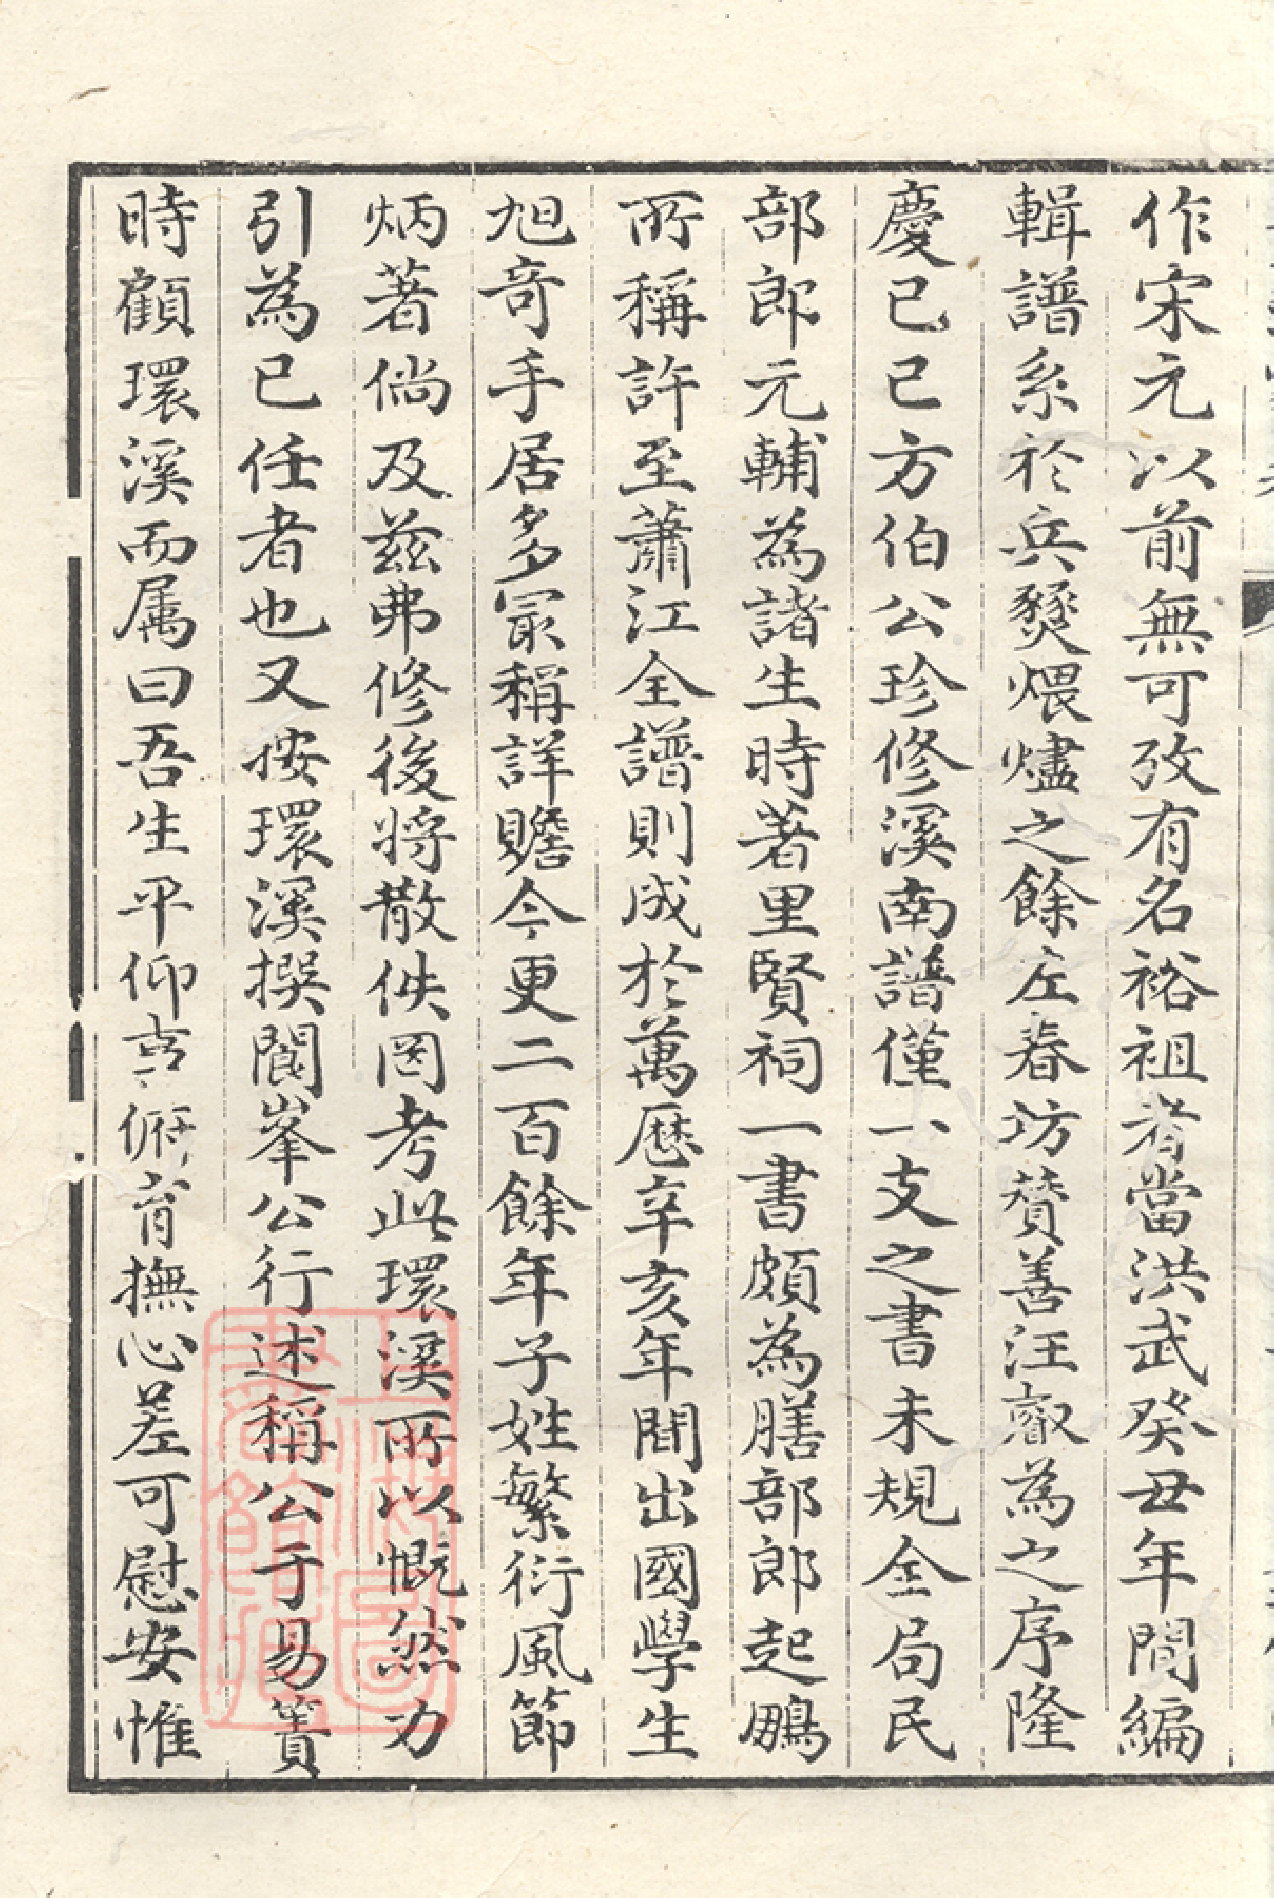 作宋元以前無可攷有名裕祖者當洪武癸丑年間編
輯譜系於兵燹煨燼之餘左春坊賛善汪叡為之序隆
慶己巳方伯公珍修溪南譜僅一支之書未規全局民
部郎元輔為諸生時著里賢祠一書頗為膳部郎起鵬
所稱許至蕭江全譜則成於萬歷辛亥年間出國學生
旭奇手居多冣稱詳贍今更二百餘年子姓繁衍風節
炳著倘及茲弗修後將散佚罔考此環溪所以慨然力
引為已任者也又按環溪撰閬峯公行述稱公于易簀
時顧環溪而属曰吾生平仰事俯育撫心差可慰安惟
上海圖書館藏